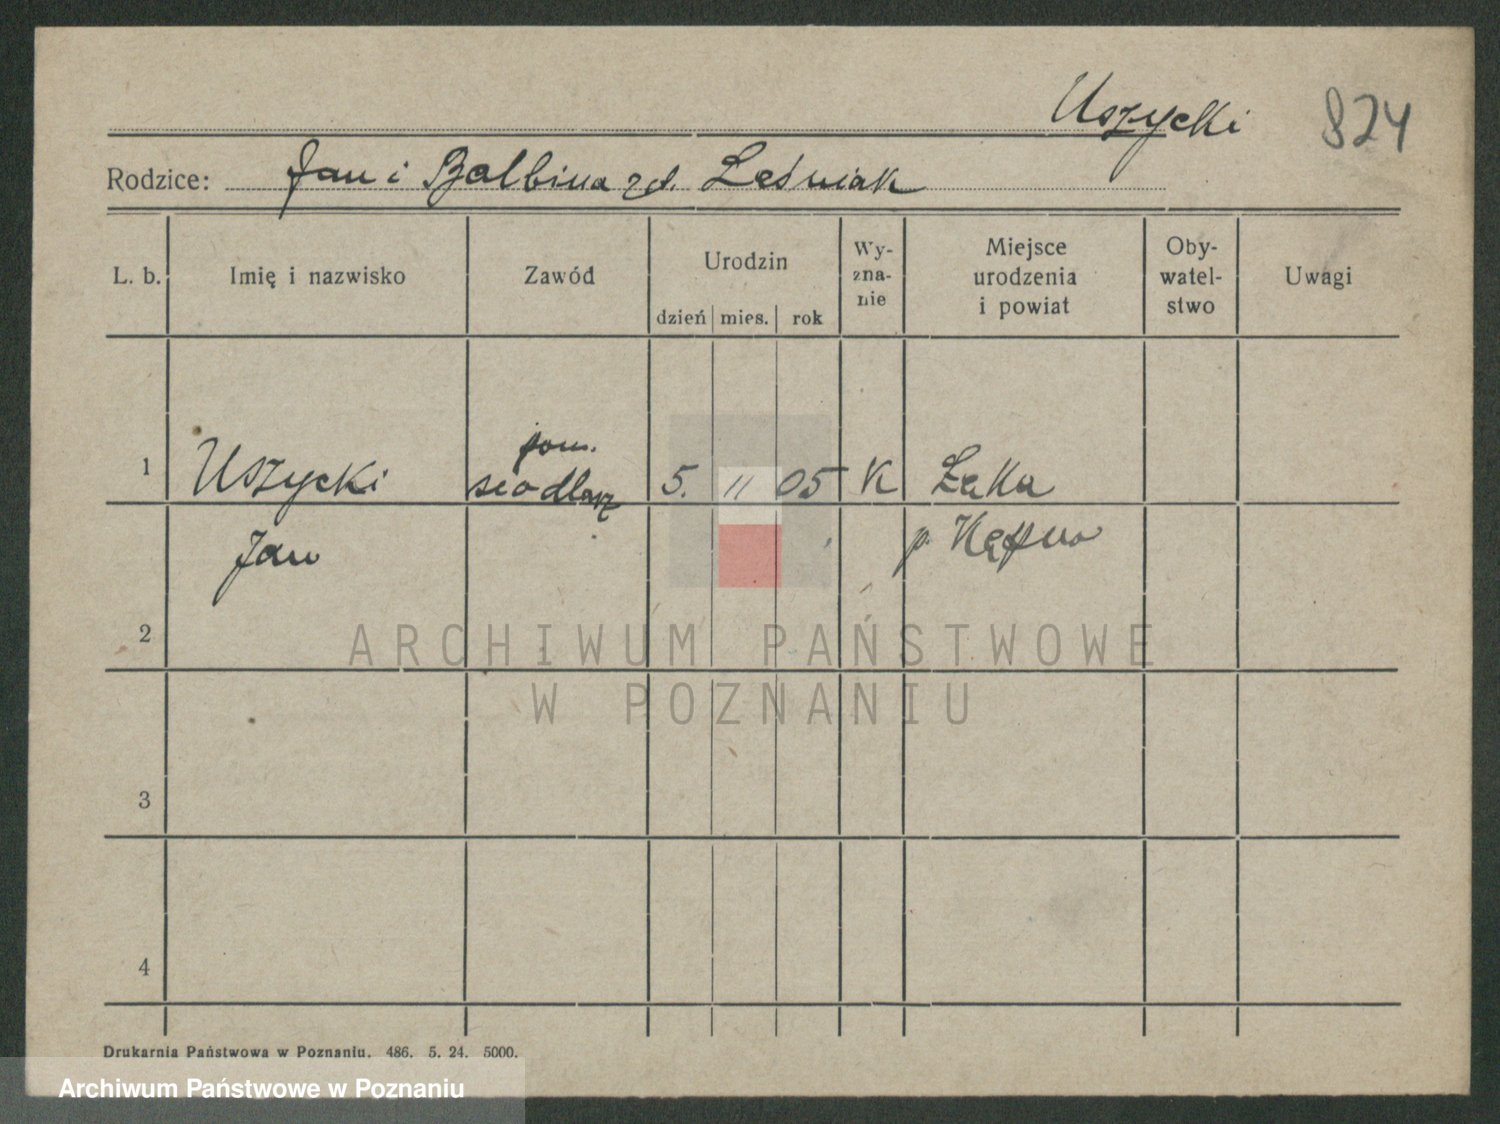 Uszycki 824
Rodzice: Jan i Balbina zd. Leśniak
L. b. Imię i nazwisko Zawód Urodzin dzień mies. rok Wy-zna-nie Miejsce urodzenia i powiat Oby-watel-stwo Uwagi
1 Uszycki pom. siodlarz 5. 11 05 K Łęka
Jan p. Kępno
2
ARCHIWUM PAŃSTWOWE
W POZNANIU
3
4
Drukarnia Państwowa w Poznaniu. 486. 5. 24. 5000.
Archiwum Państwowe w Poznaniu